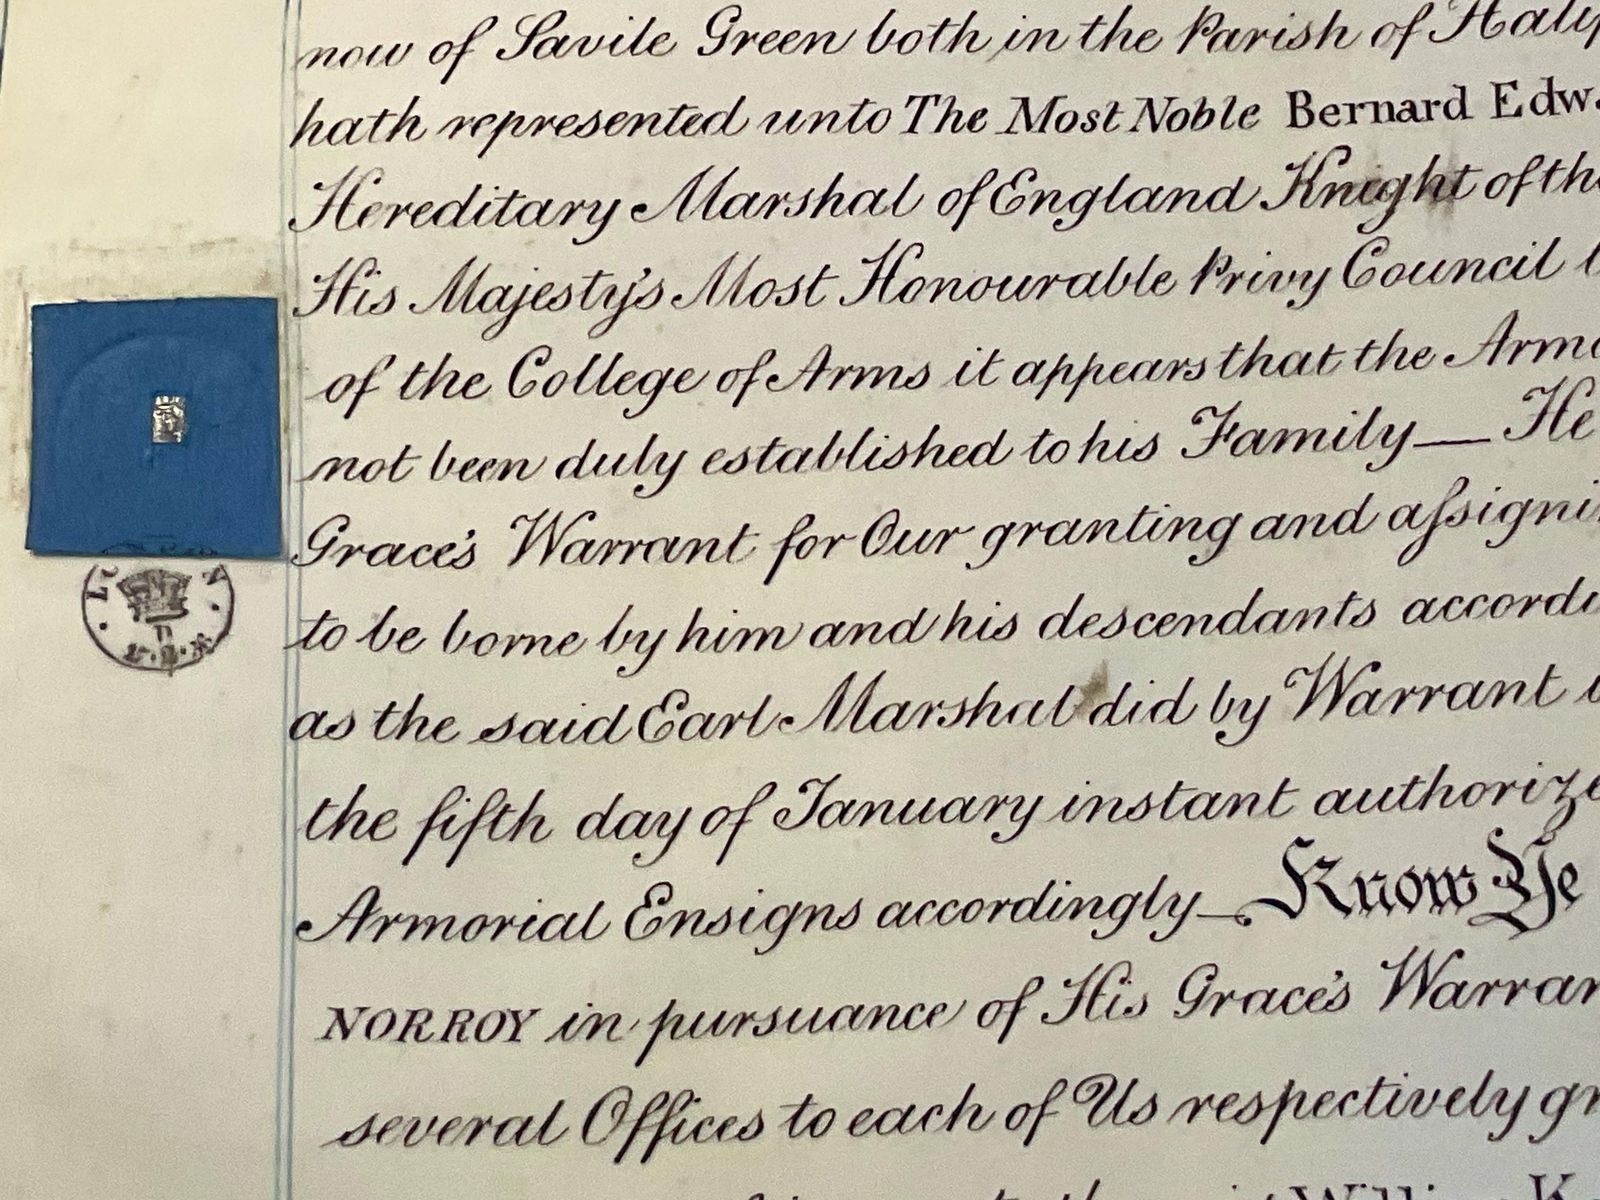 now of Savile Green both in the Parish of Halif
hath represented unto The Most Noble Bernard Edw
Hereditary Marshal of England Knight of the
His Majesty's Most Honourable Privy Council
of the College of Arms it appears that the Armo
not been duly established to his Family — He
Grace's Warrant for Our granting and aſsigni
to be borne by him and his descendants accordi
as the said Earl Marshal did by Warrant
the fifth day of January instant authorize
Armorial Ensigns accordingly — Know Ye
NORROY in pursuance of His Grace's Warran
several Offices to each of Us respectively gr